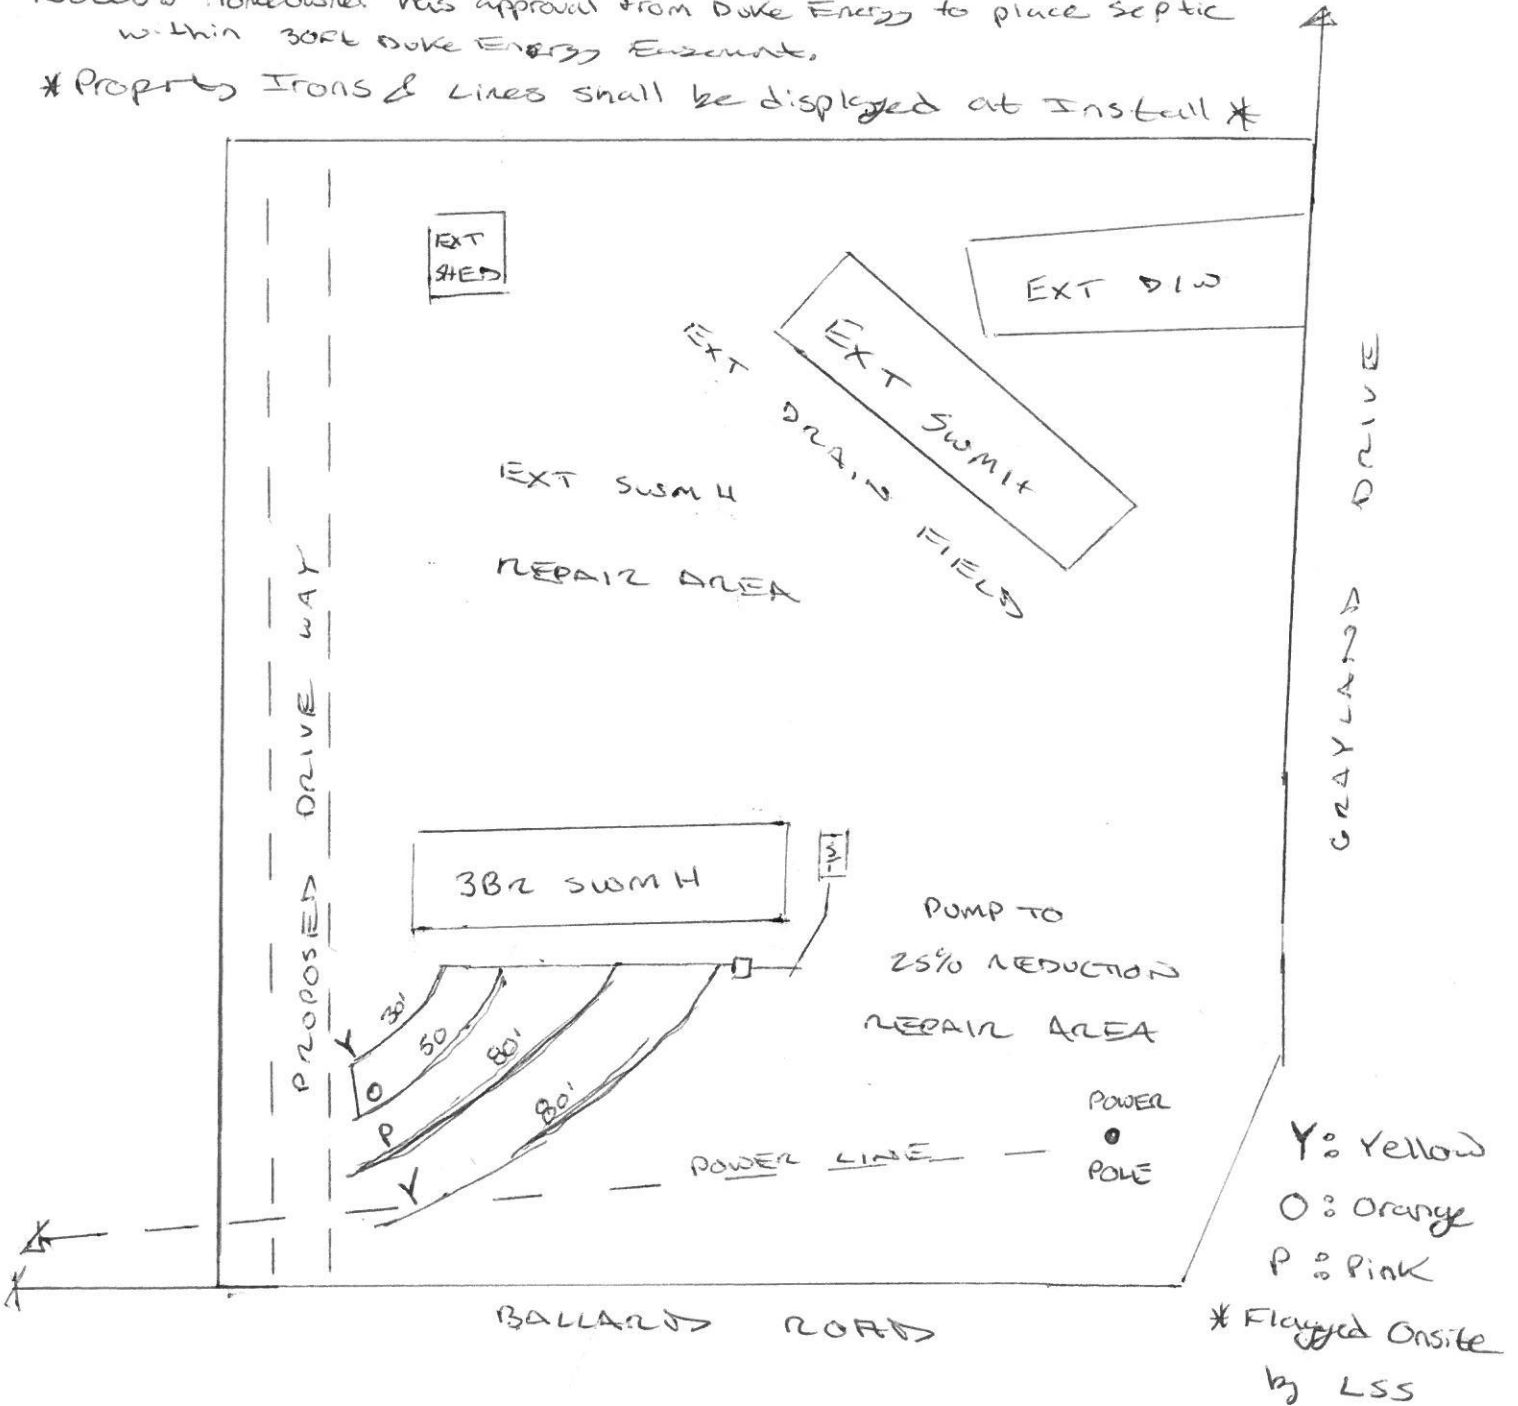 Homeowner has approval from Duke Energy to place septic
within 30ft Duke Energy Easement.
* Property Irons & Lines shall be displayed at Install *
EXT
SHED
EXT D/W
EXT SWMH
EXT DRAIN FIELD
EXT SWMH
REPAIR AREA
GRAYLAND DRIVE
PROPOSED DRIVE WAY
3BR SWMH
ST
PUMP TO
25% REDUCTION
REPAIR AREA
30'
50
80'
80'
Y
O
P
Y
POWER LINE
POWER
POLE
Y: Yellow
O: Orange
P: Pink
* Flagged Onsite
by LSS
BALLARD ROAD